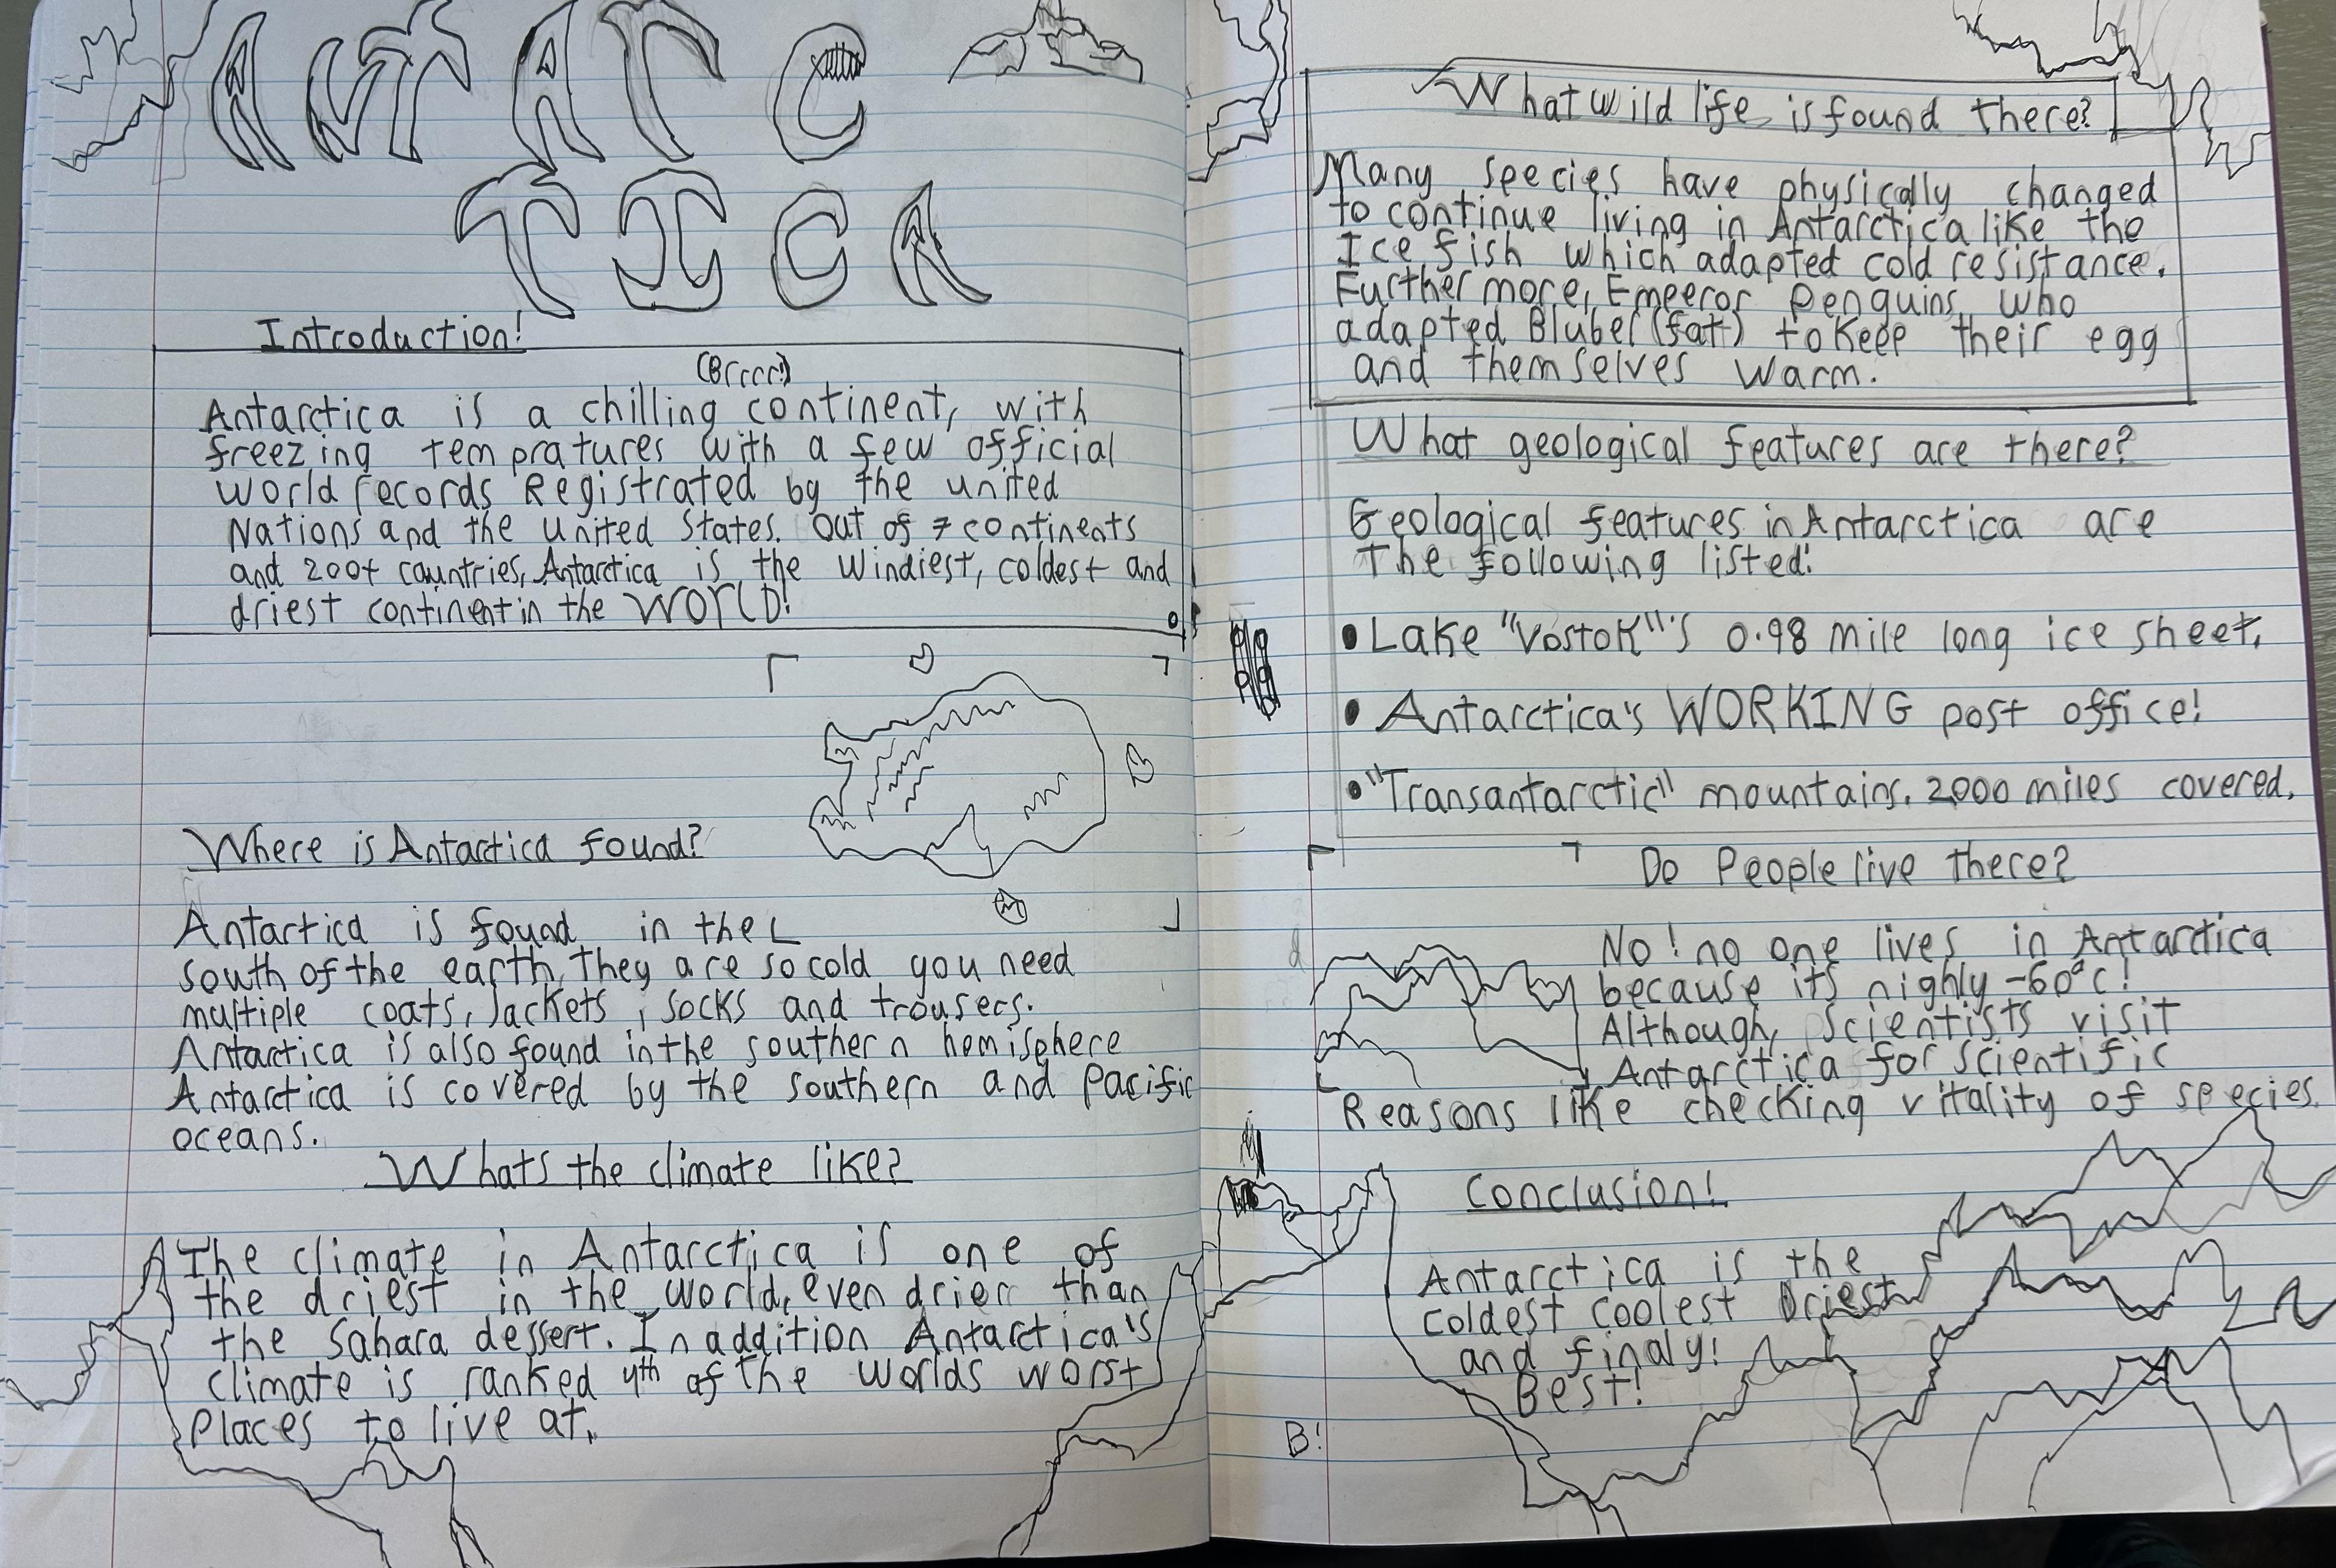 ANTARC
TICA
Introduction!
(Brrrr!)
Antarctica is a chilling continent, with
freezing tempratures with a few official
world records Registrated by the united
Nations and the united States. Out of 7 continents
and 200+ countries, Antarctica is the windiest, coldest and
driest continent in the WORLD!
Where is Antarctica found?
Antartica is found in the
south of the earth, they are so cold you need
multiple coats, Jackets, socks and trousers.
Antarctica is also found in the southern hemisphere
Antarctica is covered by the southern and pacific
oceans.
Whats the climate like?
The climate in Antarctica is one of
the driest in the world, even drier than
the Sahara dessert. In addition Antarctica's
climate is ranked 4th of the worlds worst
places to live at.
What wild life is found there?
Many species have physically changed
to continue living in Antarctica like the
Ice fish which adapted cold resistance.
Furthermore, Emperor penguins who
adapted Bluber (fat) to keep their egg
and themselves warm.
What geological features are there?
Geological features in Antarctica are
The following listed:
• Lake "Vostok"'s 0.98 mile long ice sheet.
• Antarctica's WORKING post office!
• "Transantarctic" mountains. 2000 miles covered.
Do People live there?
No! no one lives in Antarctica
because its highly -60°c!
Although, Scientists visit
Antarctica for scientific
Reasons like checking vitality of species.
Conclusion!
Antarctica is the
coldest coolest Driest
and finaly!
Best!
B!